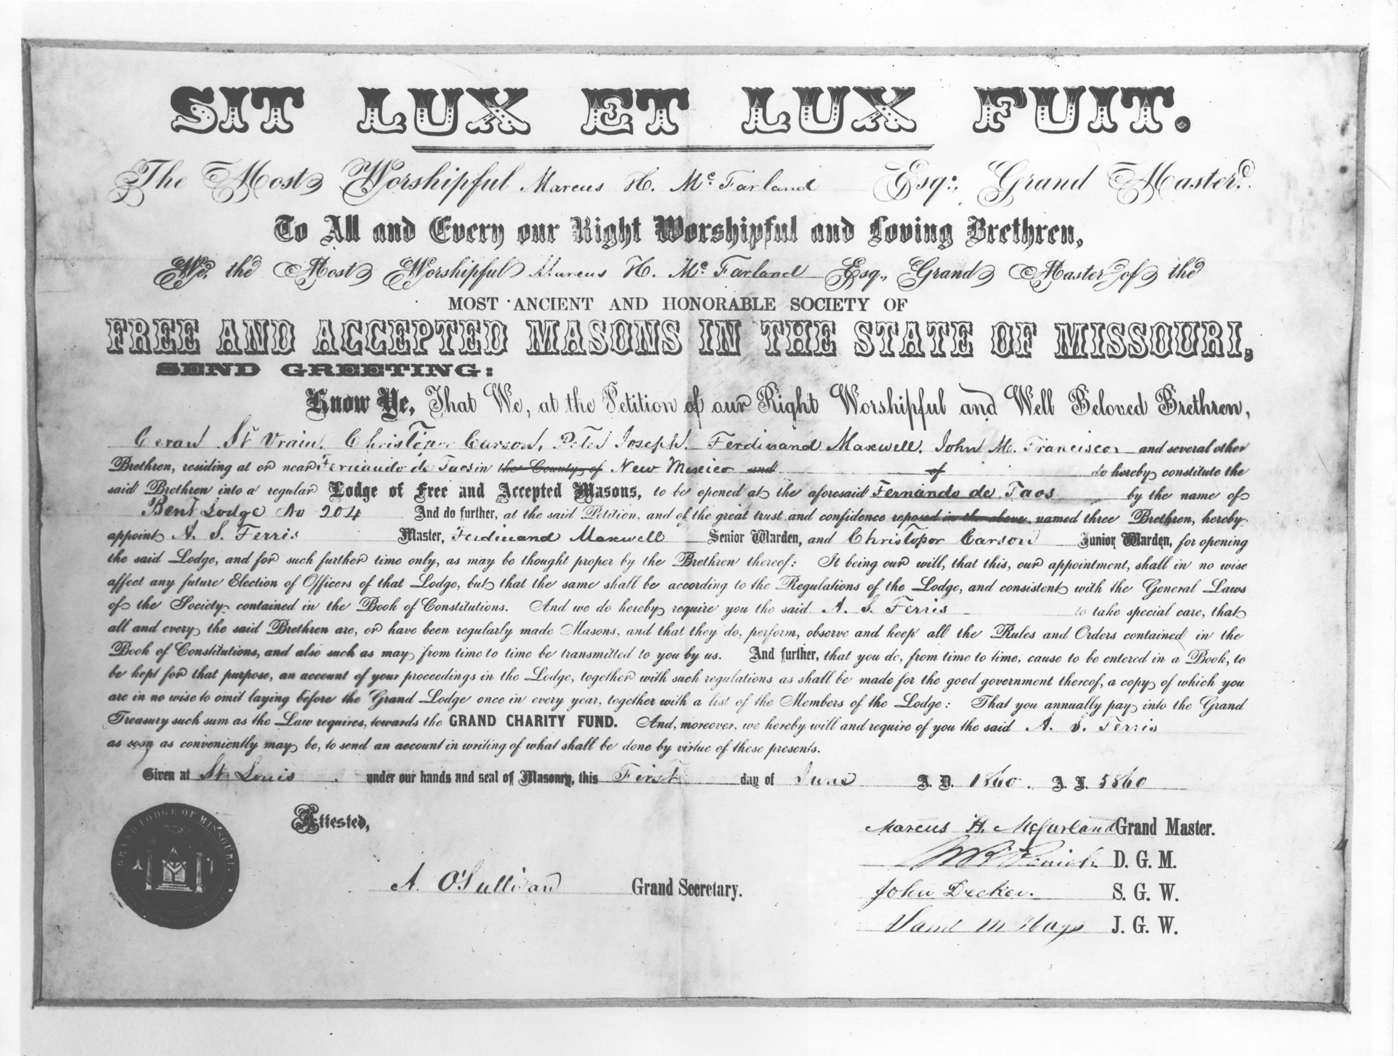 SIT LUX ET LUX FUIT.
The Most Worshipful Marcus H. Mc Farland Esq:, Grand Master.
To All and Every our Right Worshipful and Loving Brethren,
We, the Most Worshipful Marcus H. Mc Farland Esq., Grand Master of the
MOST ANCIENT AND HONORABLE SOCIETY OF
FREE AND ACCEPTED MASONS IN THE STATE OF MISSOURI,
SEND GREETING:
Know Ye, That We, at the Petition of our Right Worshipful and Well Beloved Brethren,
Ceran St Vrain, Christopor Carson, Peter Joseph, Ferdinand Maxwell, John M. Francisco and several other
Brethren, residing at or near Fernando de Taos in the County of New Mexico and of do hereby constitute the
said Brethren into a regular Lodge of Free and Accepted Masons, to be opened at the aforesaid Fernando de Taos by the name of
Bent Lodge No 204 And do further, at the said Petition, and of the great trust and confidence reposed in the above named three Brethren, hereby
appoint A. S. Ferris Master, Ferdinand Maxwell Senior Warden, and Christopor Carson Junior Warden, for opening
the said Lodge, and for such further time only, as may be thought proper by the Brethren thereof: It being our will, that this, our appointment, shall in no wise
affect any future Election of Officers of that Lodge, but that the same shall be according to the Regulations of the Lodge, and consistent with the General Laws
of the Society contained in the Book of Constitutions. And we do hereby require you the said A. S. Ferris to take special care, that
all and every the said Brethren are, or have been regularly made Masons, and that they do, perform, observe and keep all the Rules and Orders contained in the
Book of Constitutions, and also such as may from time to time be transmitted to you by us. And further, that you do, from time to time, cause to be entered in a Book, to
be kept for that purpose, an account of your proceedings in the Lodge, together with such regulations as shall be made for the good government thereof, a copy of which you
are in no wise to omit laying before the Grand Lodge once in every year, together with a list of the Members of the Lodge: That you annually pay into the Grand
Treasury such sum as the Law requires, towards the GRAND CHARITY FUND. And, moreover, we hereby will and require of you the said A. S. Ferris
as soon as conveniently may be, to send an account in writing of what shall be done by virtue of these presents.
Given at St. Louis under our hands and seal of Masonry, this First day of June A. D. 1860. A. L. 5860
Attested,
GRAND LODGE OF MISSOURI
A. O'Sullivan Grand Secretary.
Marcus H. McFarland Grand Master.
D. G. M.
John Decker. S. G. W.
J. G. W.